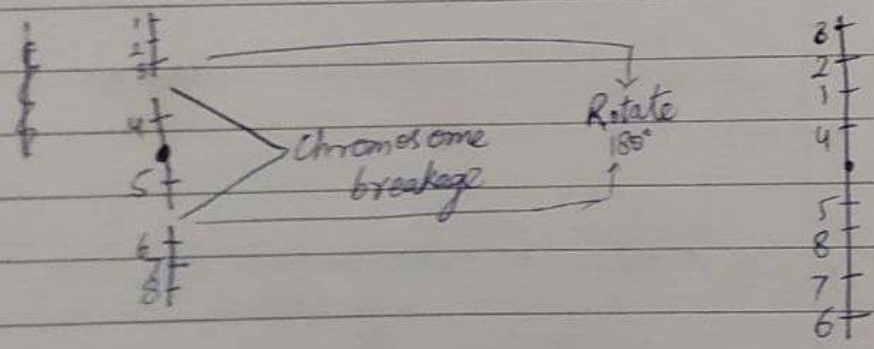 1
2
3
4
5
6
7
8
Chromosome
breakage
Rotate
180°
3
2
1
4
5
8
7
6